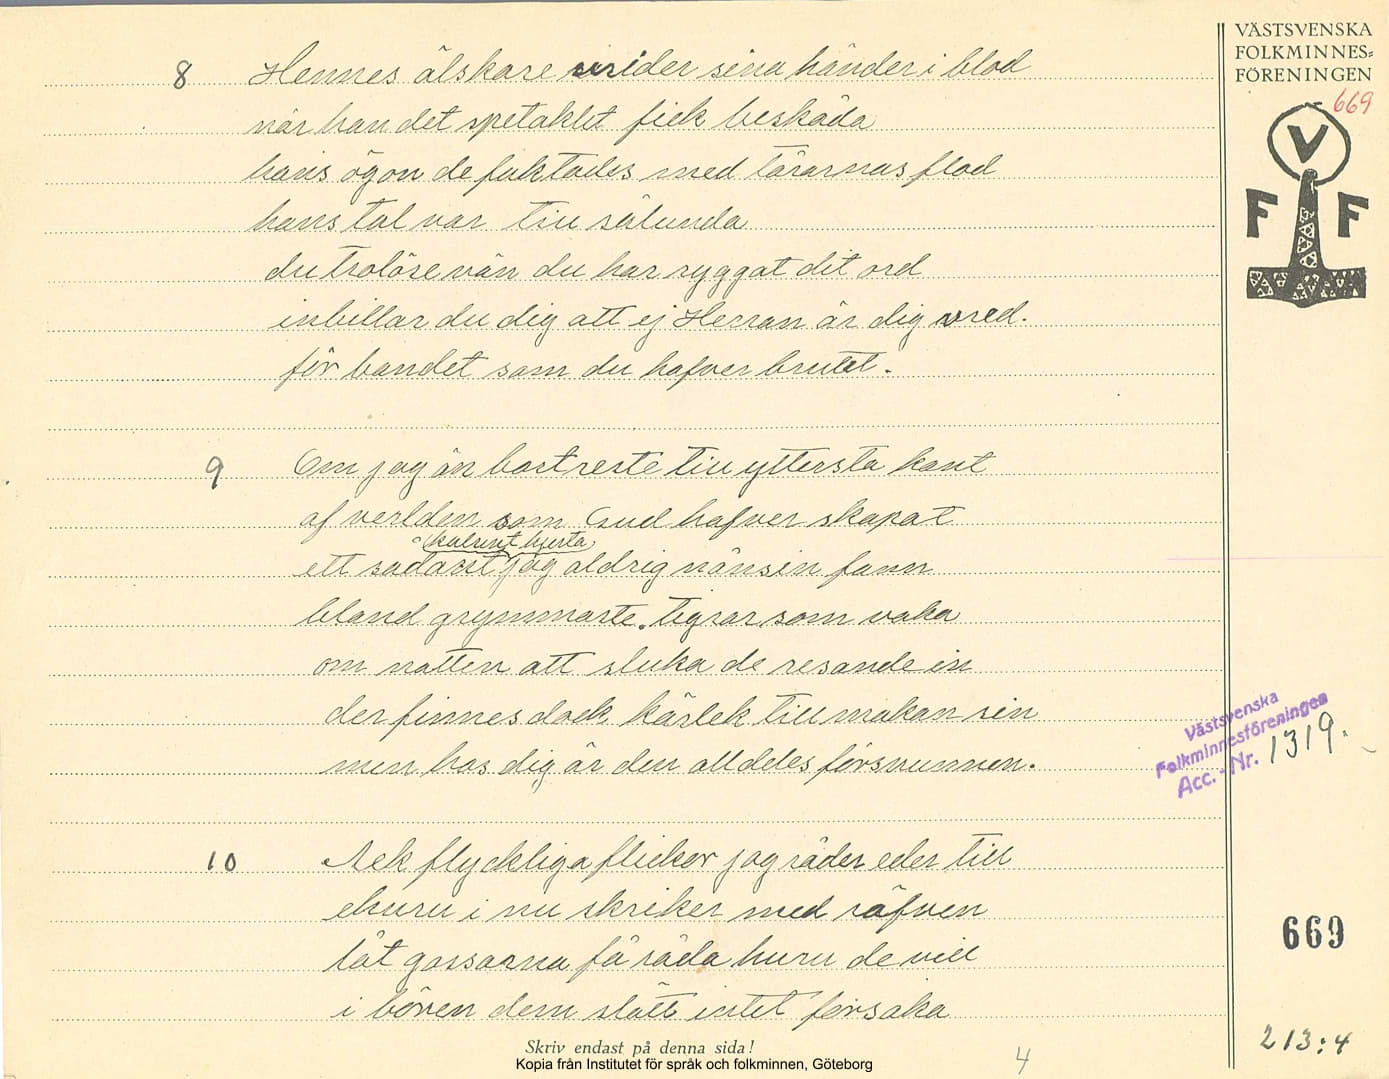 VÄSTSVENSKA
FOLKMINNES=
FÖRENINGEN
669
V
F F
8 Hennes älskare vrider sina händer i blod
när han det spetaklet fick beskåda
hans ögon de fuktades med tårarnas flod
hans tal var till sålunda
du trolöse vän du har ryggat dit ord
inbillar du dig att ej Herran är dig vred.
för bandet som du hafver brutit.
9 Om jag än bortreste till yttersta kant
af verlden som Gud hafver skapat
hjerta
ett sådant jag aldrig nånsin fann
bland grymmarte tigrar som vaka
om natten att sluka de resande in
der finnes dock kärlek till makan sin
men hos dig är den alldeles försvunnen.
Västsvenska
Folkminnesföreningen
Acc.-Nr. 1319.
10 Ack flyckliga flickor jag råder eder till
ehuru i nu skriker med
låt gossarna få råda huru de vill
i bören dem slätt intet försaka
669
Skriv endast på denna sida!
Kopia från Institutet för språk och folkminnen, Göteborg
4
213:4